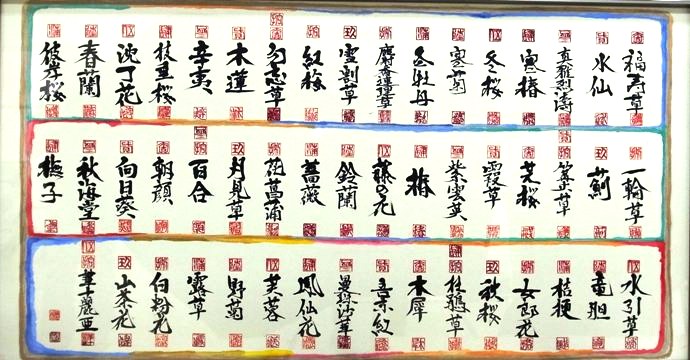 福寿草
水仙
寒椿
冬桜
寒菊
冬牡丹
雪割草
紅梅
勿忘草
木蓮
辛夷
枝垂桜
沈丁花
春蘭
彼岸桜
一輪草
薊
芝桜
霞草
紫雲英
椿
藤の花
鈴蘭
薔薇
花菖蒲
月見草
百合
朝顔
向日葵
秋海棠
梔子
水引草
竜胆
桔梗
女郎花
秋桜
杜鵑草
木犀
吾亦紅
曼珠沙華
鳳仙花
芙蓉
野菊
露草
白粉花
山茶花